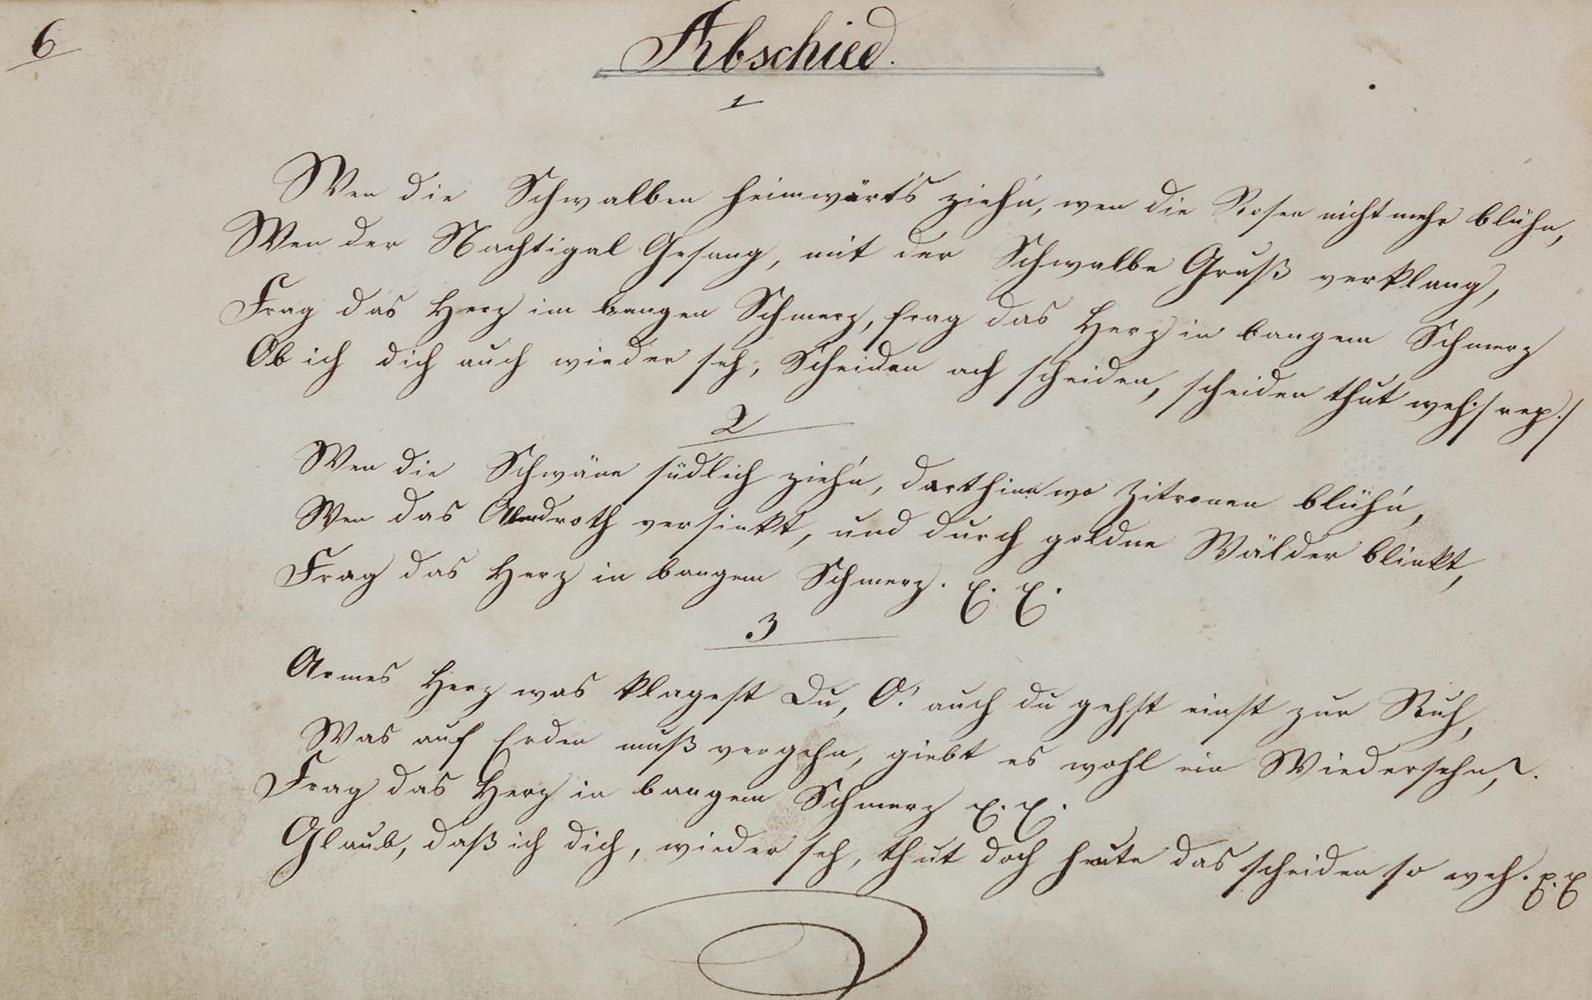 6
Abschied.
1
Wen die Schwalben heimwärts zieh'n, wen die Rosen nicht mehr blühn,
Wen der Nachtigal Gesang, mit der Schwalbe Gruß verklang,
Frag das Herz im bangen Schmerz, frag das Herz in bangem Schmerz
Ob ich dich auch wieder seh, Scheiden ach scheiden, scheiden thut weh :/ rep :/
2
Wen die Schwäne südlich zieh'n, dorthin wo Zitronen blüh'n,
Wen das Abendroth versinkt, und durch goldne Wälder blinkt,
Frag das Herz in bangem Schmerz.
3
Armes Herz was klagest Du, O! auch du gehst einst zur Ruh,
Was auf Erden muß vergehn, giebt es wohl ein Wiedersehn,?.
Frag das Herz in bangem Schmerz
Glaub, daß ich dich, wieder seh, thut doch heute das scheiden so weh.